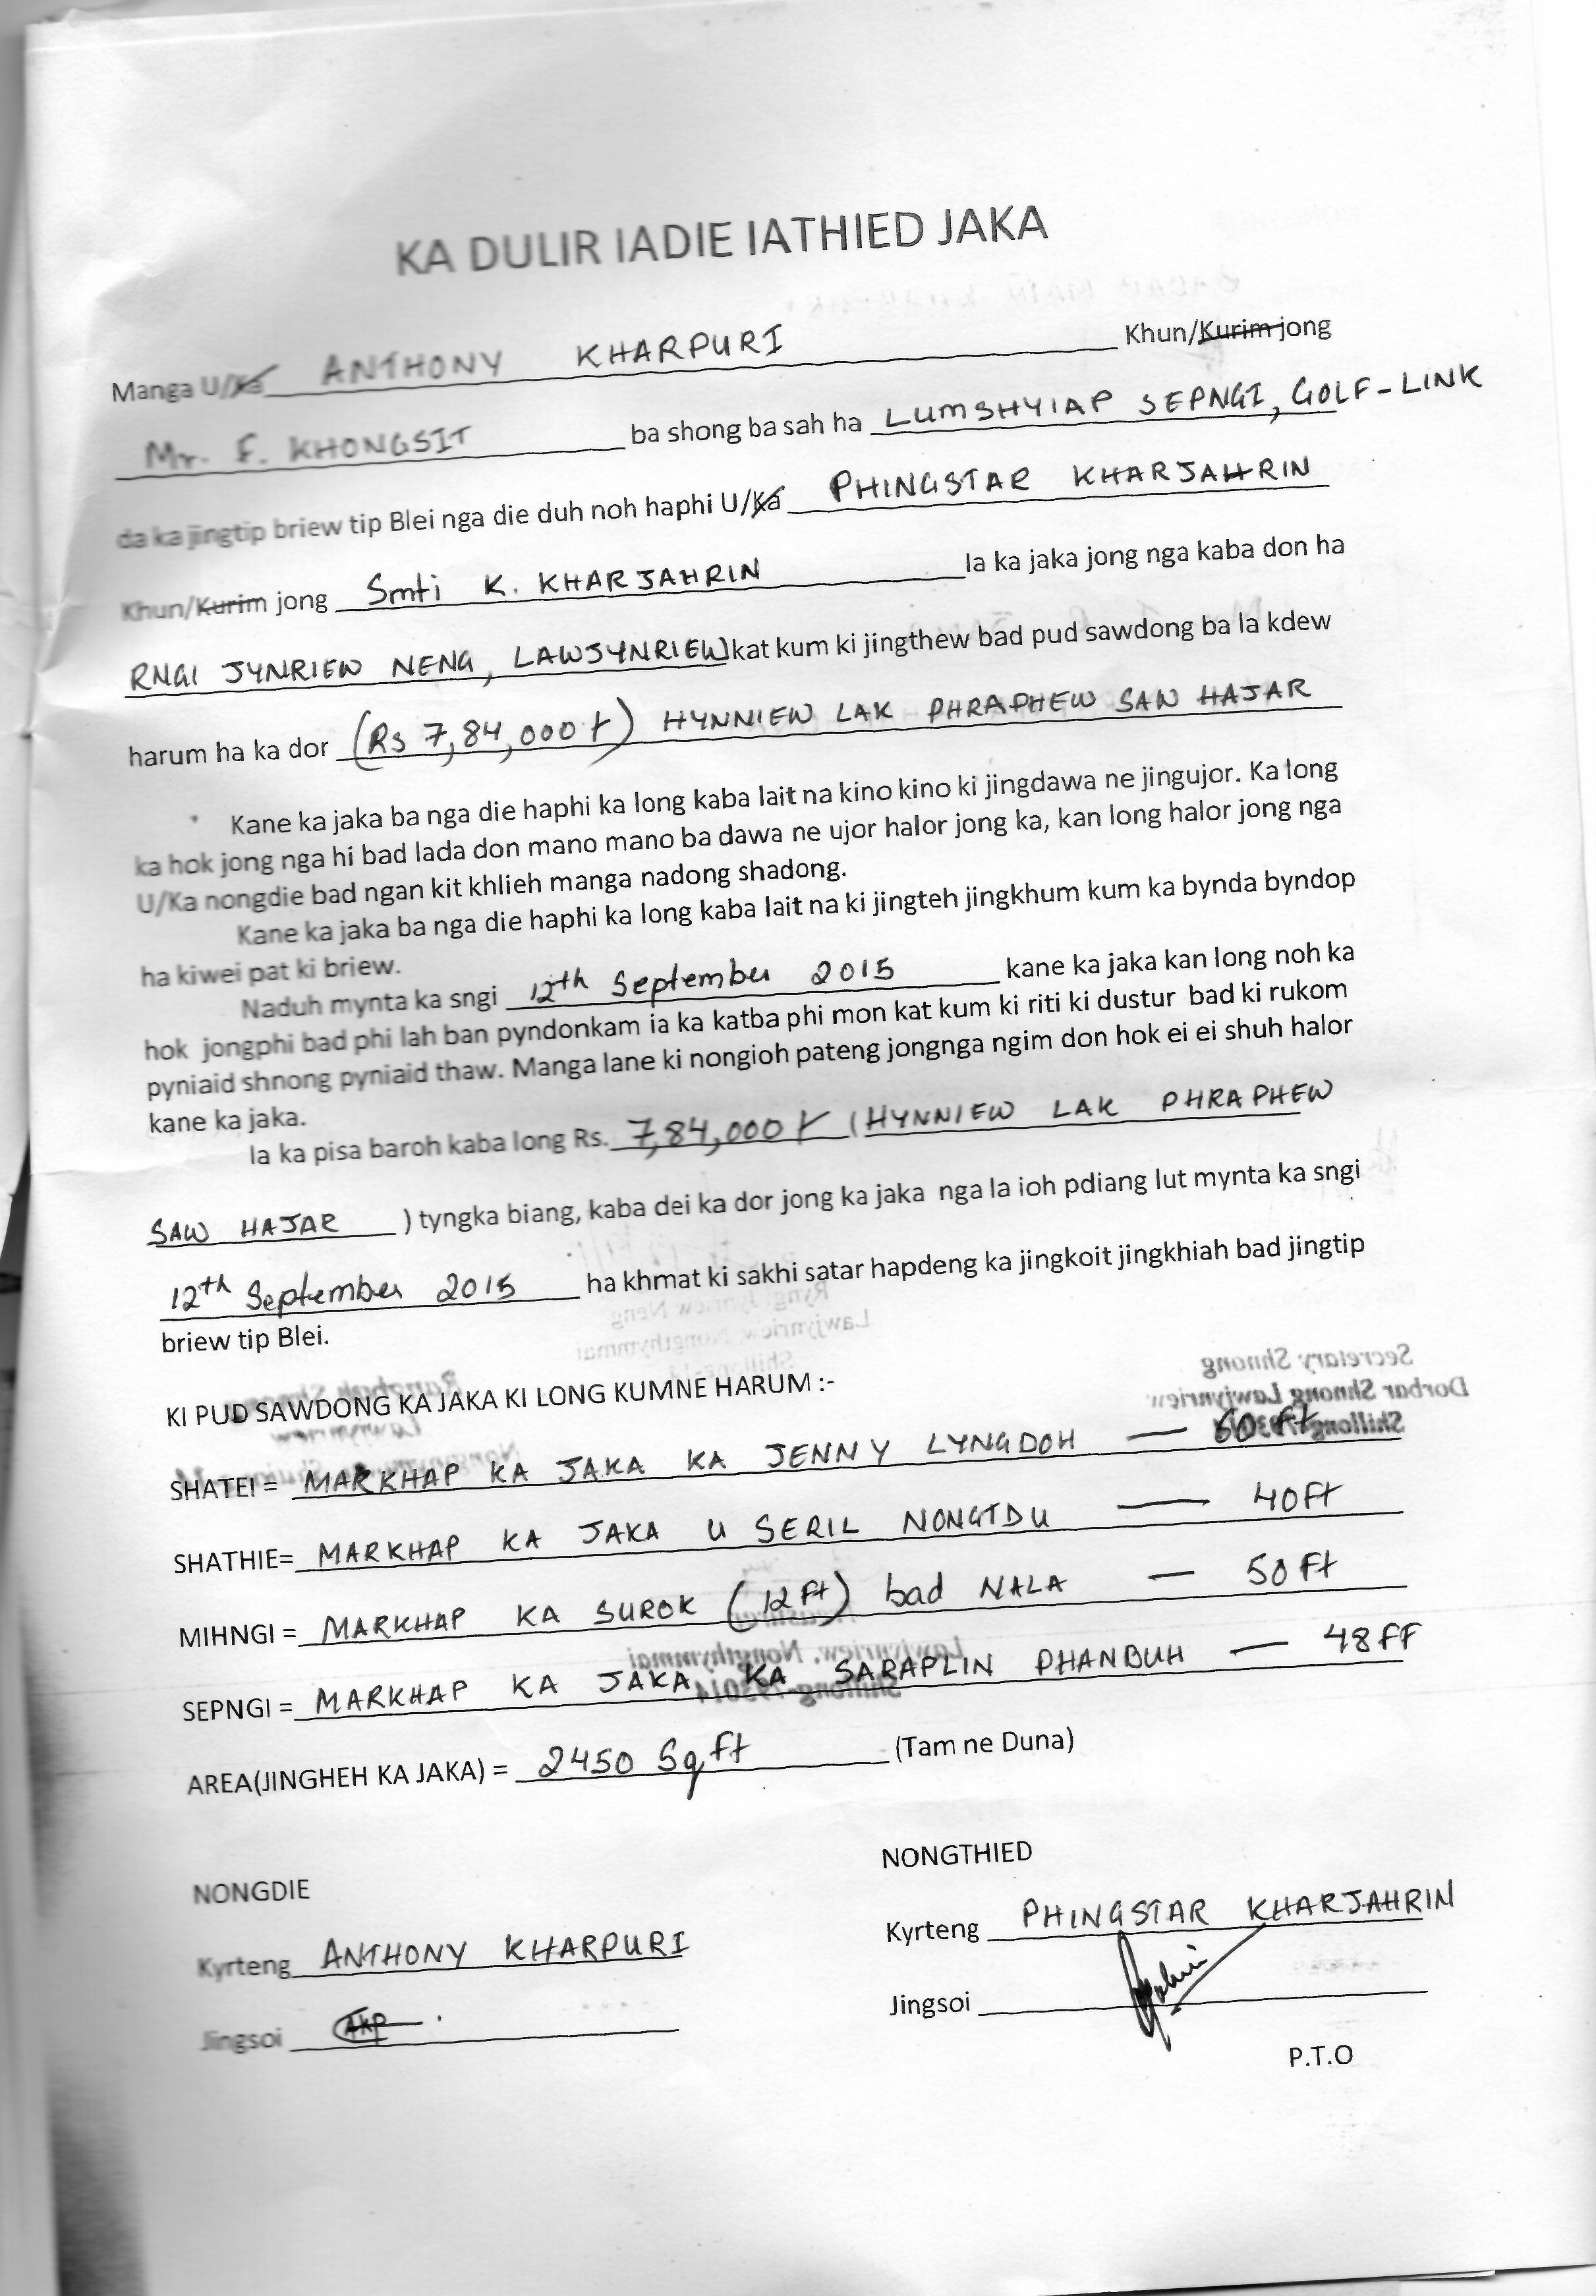 KA DULIR IADIE IATHIED JAKA
Manga U/Ka ANTHONY KHARPURI Khun/Kurim jong
Mr. F. KHONGSIT ba shong ba sah ha LUMSHYIAP SEPNGI, GOLF-LINK
da ka jingtip briew tip Blei nga die duh noh haphi U/Ka PHINGSTAR KHARJAHRIN
Khun/Kurim jong Smti K. KHARJAHRIN ia ka jaka jong nga kaba don ha
RNGI JYNRIEW NENG, LAWJYNRIEW kat kum ki jingthew bad pud sawdong ba la kdew
harum ha ka dor (Rs 7,84,000/-) HYNNIEW LAK PHRAPHEW SAN HAJAR
Kane ka jaka ba nga die haphi ka long kaba lait na kino kino ki jingdawa ne jingujor. Ka long
ka hok jong nga hi bad lada don mano mano ba dawa ne ujor halor jong ka, kan long halor jong nga
U/Ka nongdie bad ngan kit khlieh manga nadong shadong.
Kane ka jaka ba nga die haphi ka long kaba lait na ki jingteh jingkhum kum ka bynda byndop
ha kiwei pat ki briew.
Naduh mynta ka sngi 12th September 2015 kane ka jaka kan long noh ka
hok jongphi bad phi lah ban pyndonkam ia ka katba phi mon kat kum ki riti ki dustur bad ki rukom
pyniaid shnong pyniaid thaw. Manga lane ki nongioh pateng jongnga ngim don hok ei ei shuh halor
kane ka jaka.
Ia ka pisa baroh kaba long Rs. 7,84,000/- (HYNNIEW LAK PHRAPHEW
SAW HAJAR ) tyngka biang, kaba dei ka dor jong ka jaka nga la ioh pdiang lut mynta ka sngi
12th September 2015 ha khmat ki sakhi satar hapdeng ka jingkoit jingkhiah bad jingtip
briew tip Blei.
KI PUD SAWDONG KA JAKA KI LONG KUMNE HARUM :-
Secretary Shnong
Dorbar Shnong Lawjynriew
SHATEI = MARKHAP KA JAKA KA JENNY LYNGDOH — 60 ft
SHATHIE= MARKHAP KA JAKA U SERIL NONGTDU — 40 Ft
MIHNGI = MARKHAP KA SUROK (12 Ft) bad NALA — 50 Ft
Lawjynriew, Nongthymmai
SEPNGI = MARKHAP KA JAKA KA SARAPLIN PHANBUH — 48 FF
Shillong-793014
AREA(JINGHEH KA JAKA) = 2450 Sq ft (Tam ne Duna)
NONGDIE
Kyrteng ANTHONY KHARPURI
Jingsoi AKP
NONGTHIED
Kyrteng PHINGSTAR KHARJAHRIN
Jingsoi
P.T.O